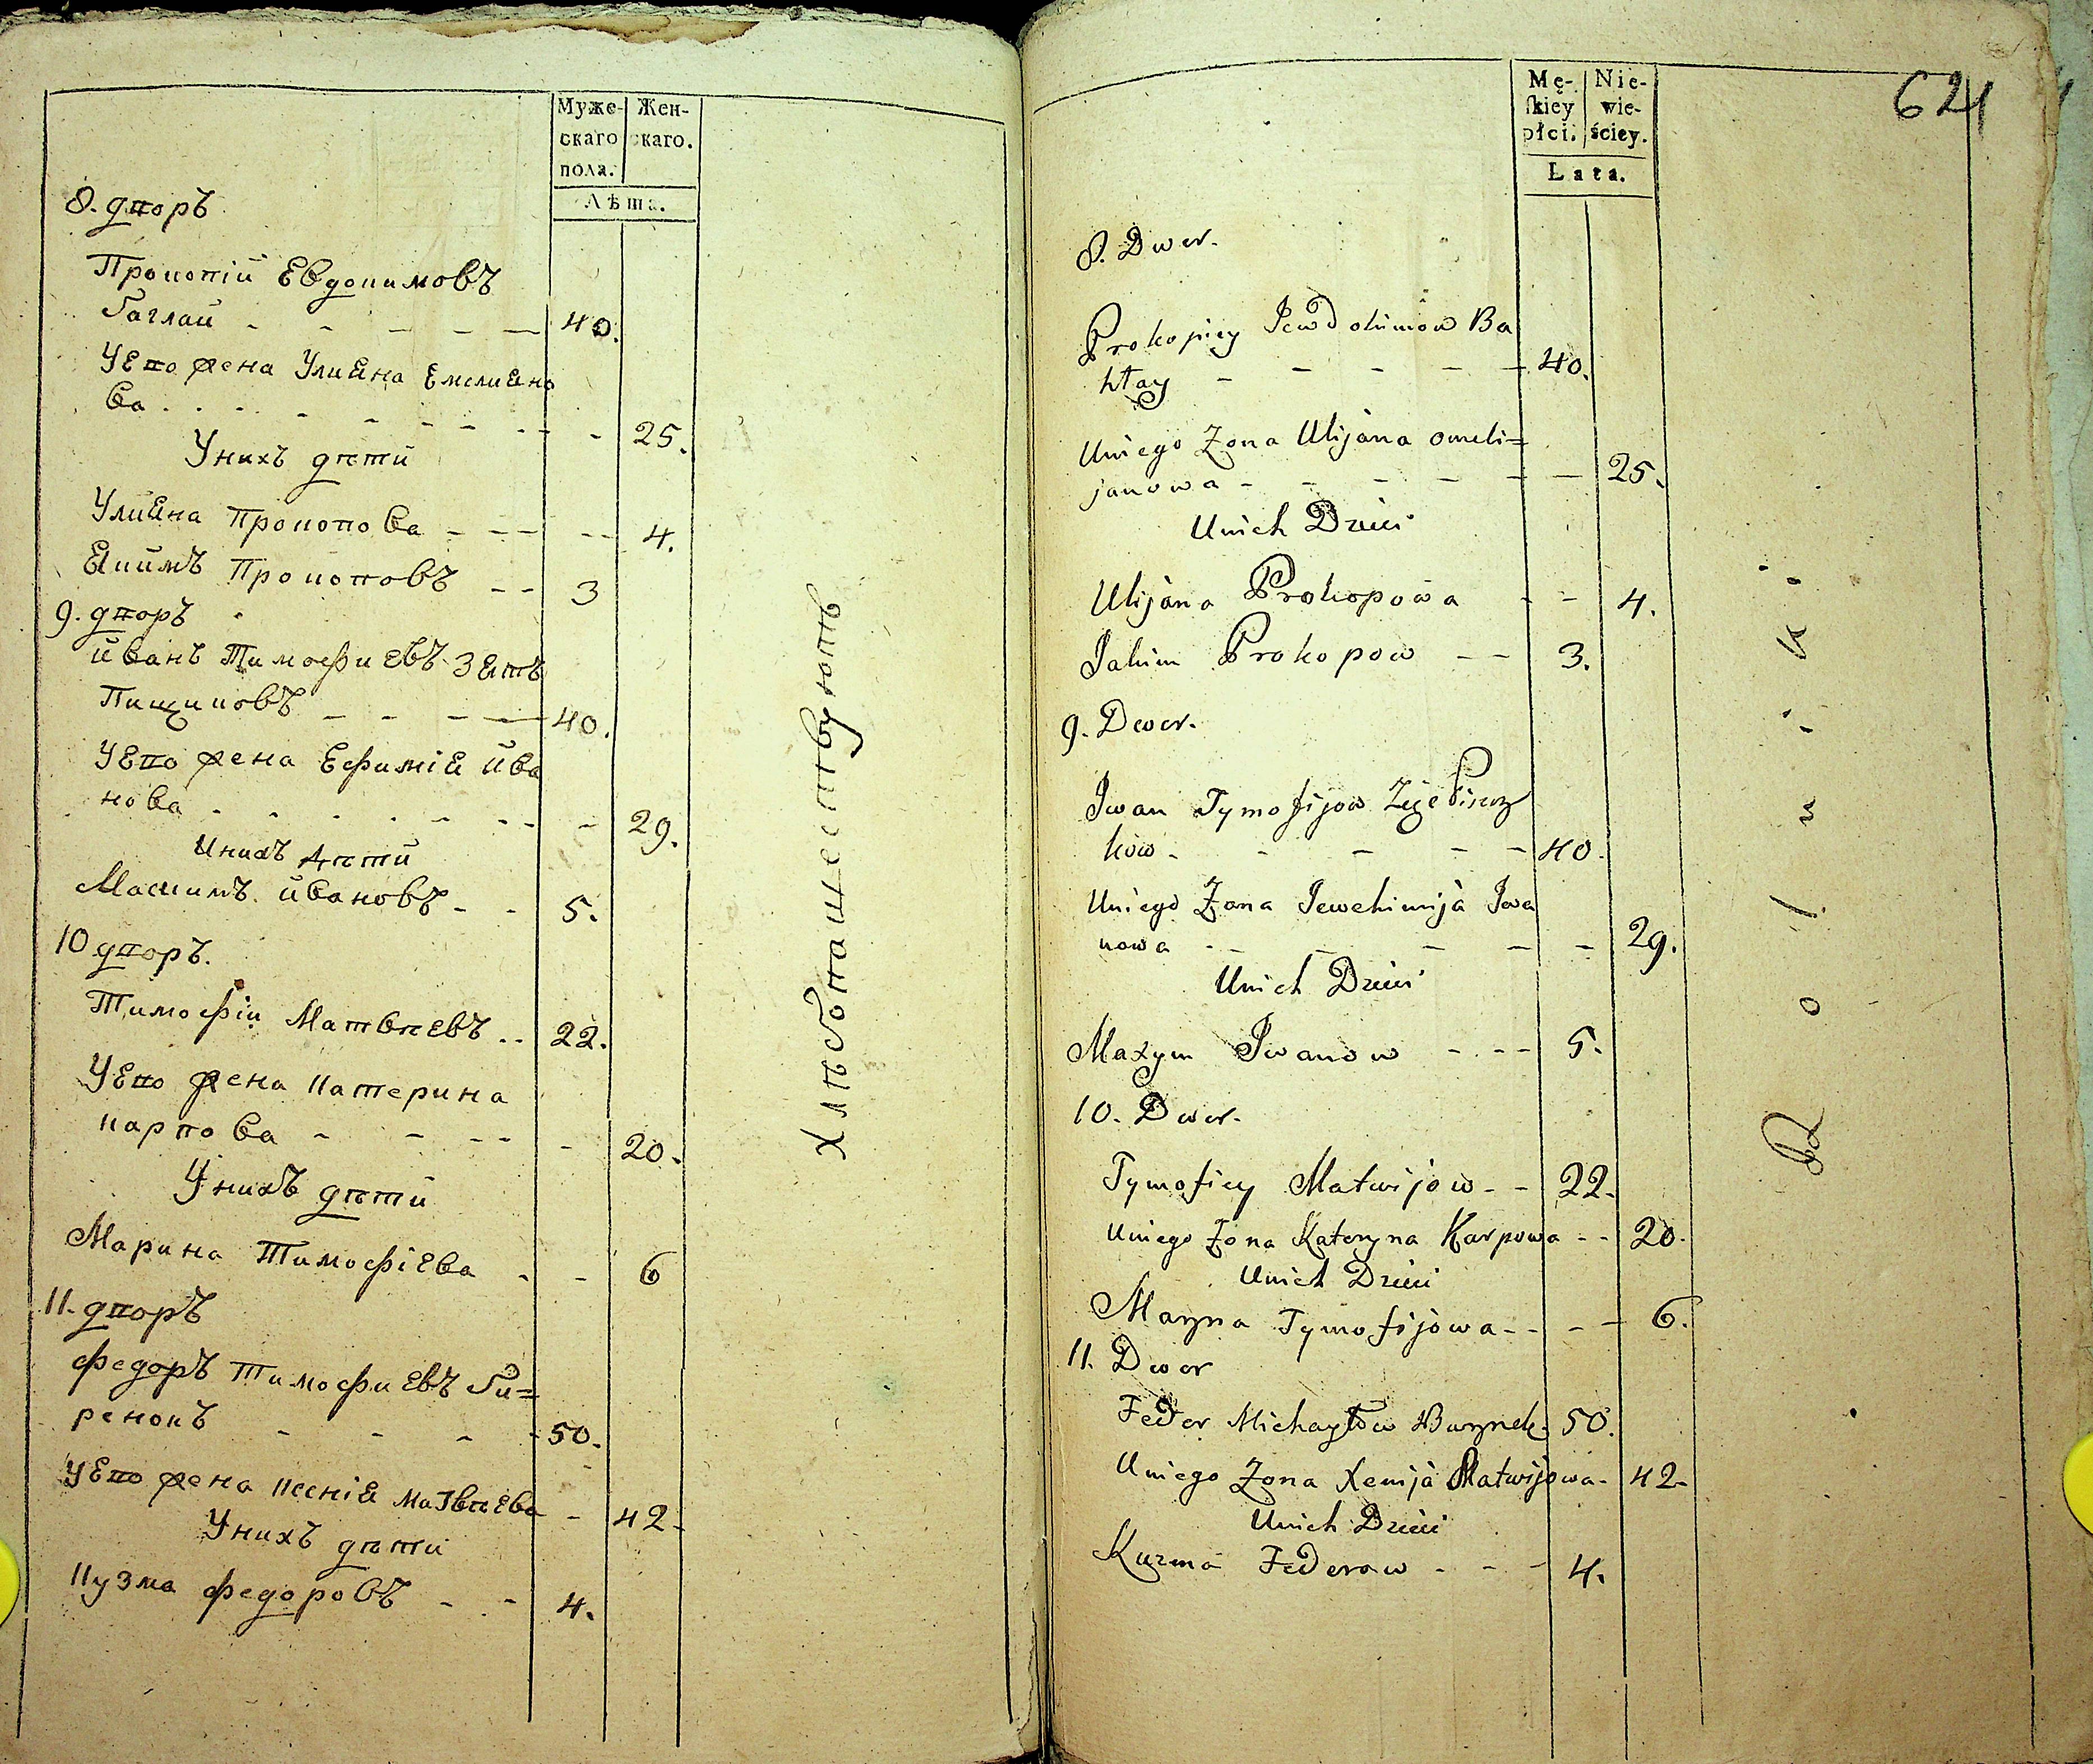 Муже-
скаго
пола.
Жен-
скаго.
Лѣта.
8. дворъ
Прокопій Евдокимовъ
Баглай - - - - - 40.
У Его жена Улияна Емелияно
ва - - - - - - 25.
У нихъ дѣти
Улияна Прокопова - - - 4.
Якимъ Прокоповъ - - 3
9. дворъ
Иванъ Тимофиевъ Зять
Пищиковъ - - - - 40.
У Его жена Ефимія Ива
нова - - - - - - 29.
У нихъ дѣти
Максимъ Ивановъ - - 5.
10 дворъ.
Тимофій Матвѣевъ - - 22.
У Его жена Катерина
Карпова - - - - - 20.
У нихъ дѣти
Марина Тимофіева - - 6
11. дворъ
Федоръ Тимофиевъ Би=
ренокъ - - - - 50.
У Его жена Ксенія Матвѣева - 42.
У нихъ дѣти
Кузма Федоровъ - - 4.
Хлѣбопашествуютъ
621
Mę-
skiey
płci.
Nie-
wie-
ściey.
Lata.
8. Dwor.
Prokopiey Jewdokimow Ba
hłay - - - - - 40.
Uniego Zona Ulijana omeli=
janowa - - - - - - 25.
Unich Dzieci
Ulijana Prokopowa - - 4.
Jakim Prokopow - - 3.
9. Dwor.
Iwan Tymofijow Zięć Piszcz
kow - - - - - 40.
Uniego Zona Jewchimija Iwa
nowa - - - - - - 29.
Unich Dzieci
Maxym Iwanow - - - - 5.
10. Dwor.
Tymofiey Matwijow - - 22.
Uniego Zona Kateryna Karpowa - - 20.
Unich Dzieci
Maryna Tymofijowa - - - - 6.
11. Dwor
Fedor Michayłow Burynek 50.
Uniego Zona Xenija Matwijowa - 42-
Unich Dzieci
Kuzma Fedorow - - - 4.
Rolniki